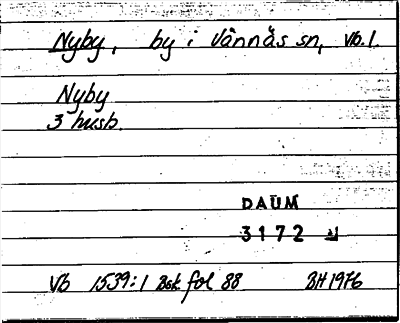 Nyby, by i Vännäs sn, Vb.l.
Nyby
3 husb.
DAUM
3172
Vb 1539:1 Bsk fol 88 BH 1976